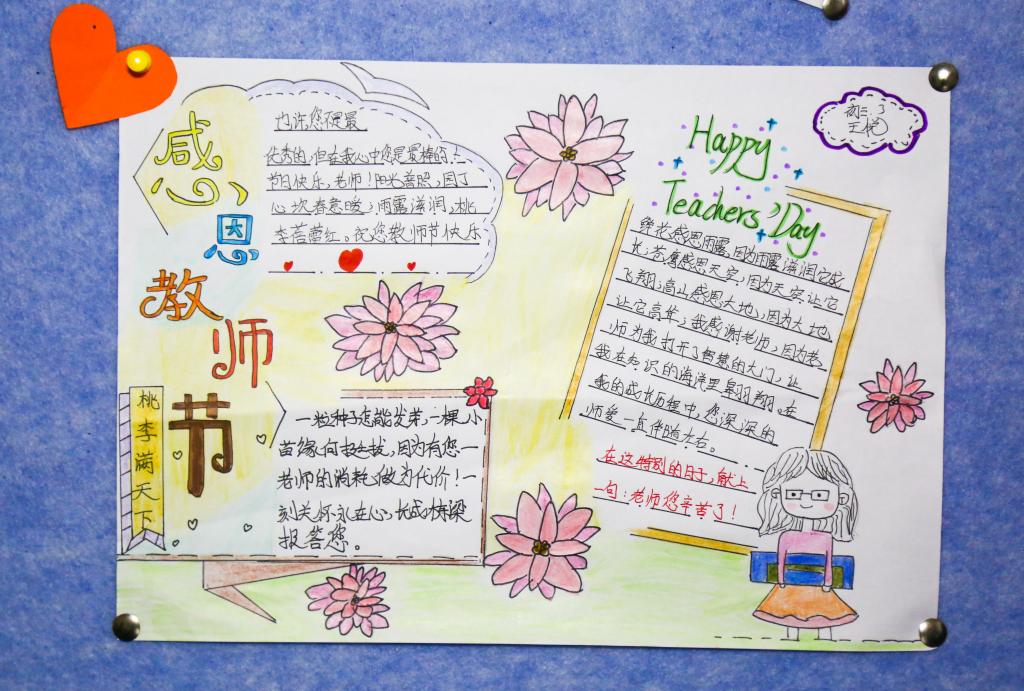 感
恩
教
师
节
也许您不是最
优秀的,但在我心中您是最棒的!
节日快乐,老师!阳光普照,园丁
心坎春意暖;雨露滋润,桃
李蓓蕾红。祝您教师节快乐
桃李满天下
一粒种子怎能发芽,一棵小
苗缘何挺拔,因为有您一
老师的消耗做为代价!一
刻关怀永在心,长成栋梁
报答您。
Happy
Teachers' Day
初二3
王悦
鲜花感恩雨露,因为雨露滋润它成
长;苍鹰感恩天空,因为天空让它
飞翔;高山感恩大地,因为大地
让它高耸;我感谢老师,因为老
师为我打开了智慧的大门,让
我在知识的海洋里翱翔。在
我的成长历程中,您深深的
师爱一直伴随左右。
在这特别的日子,献上
一句:老师您辛苦了!